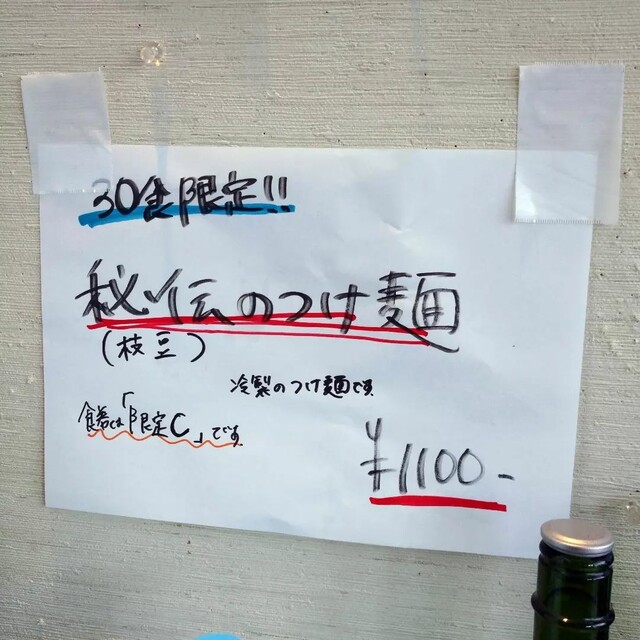 30食限定!!
秘伝のつけ麺
(枝豆)
冷製のつけ麺です
食券は「限定C」です
¥1100-